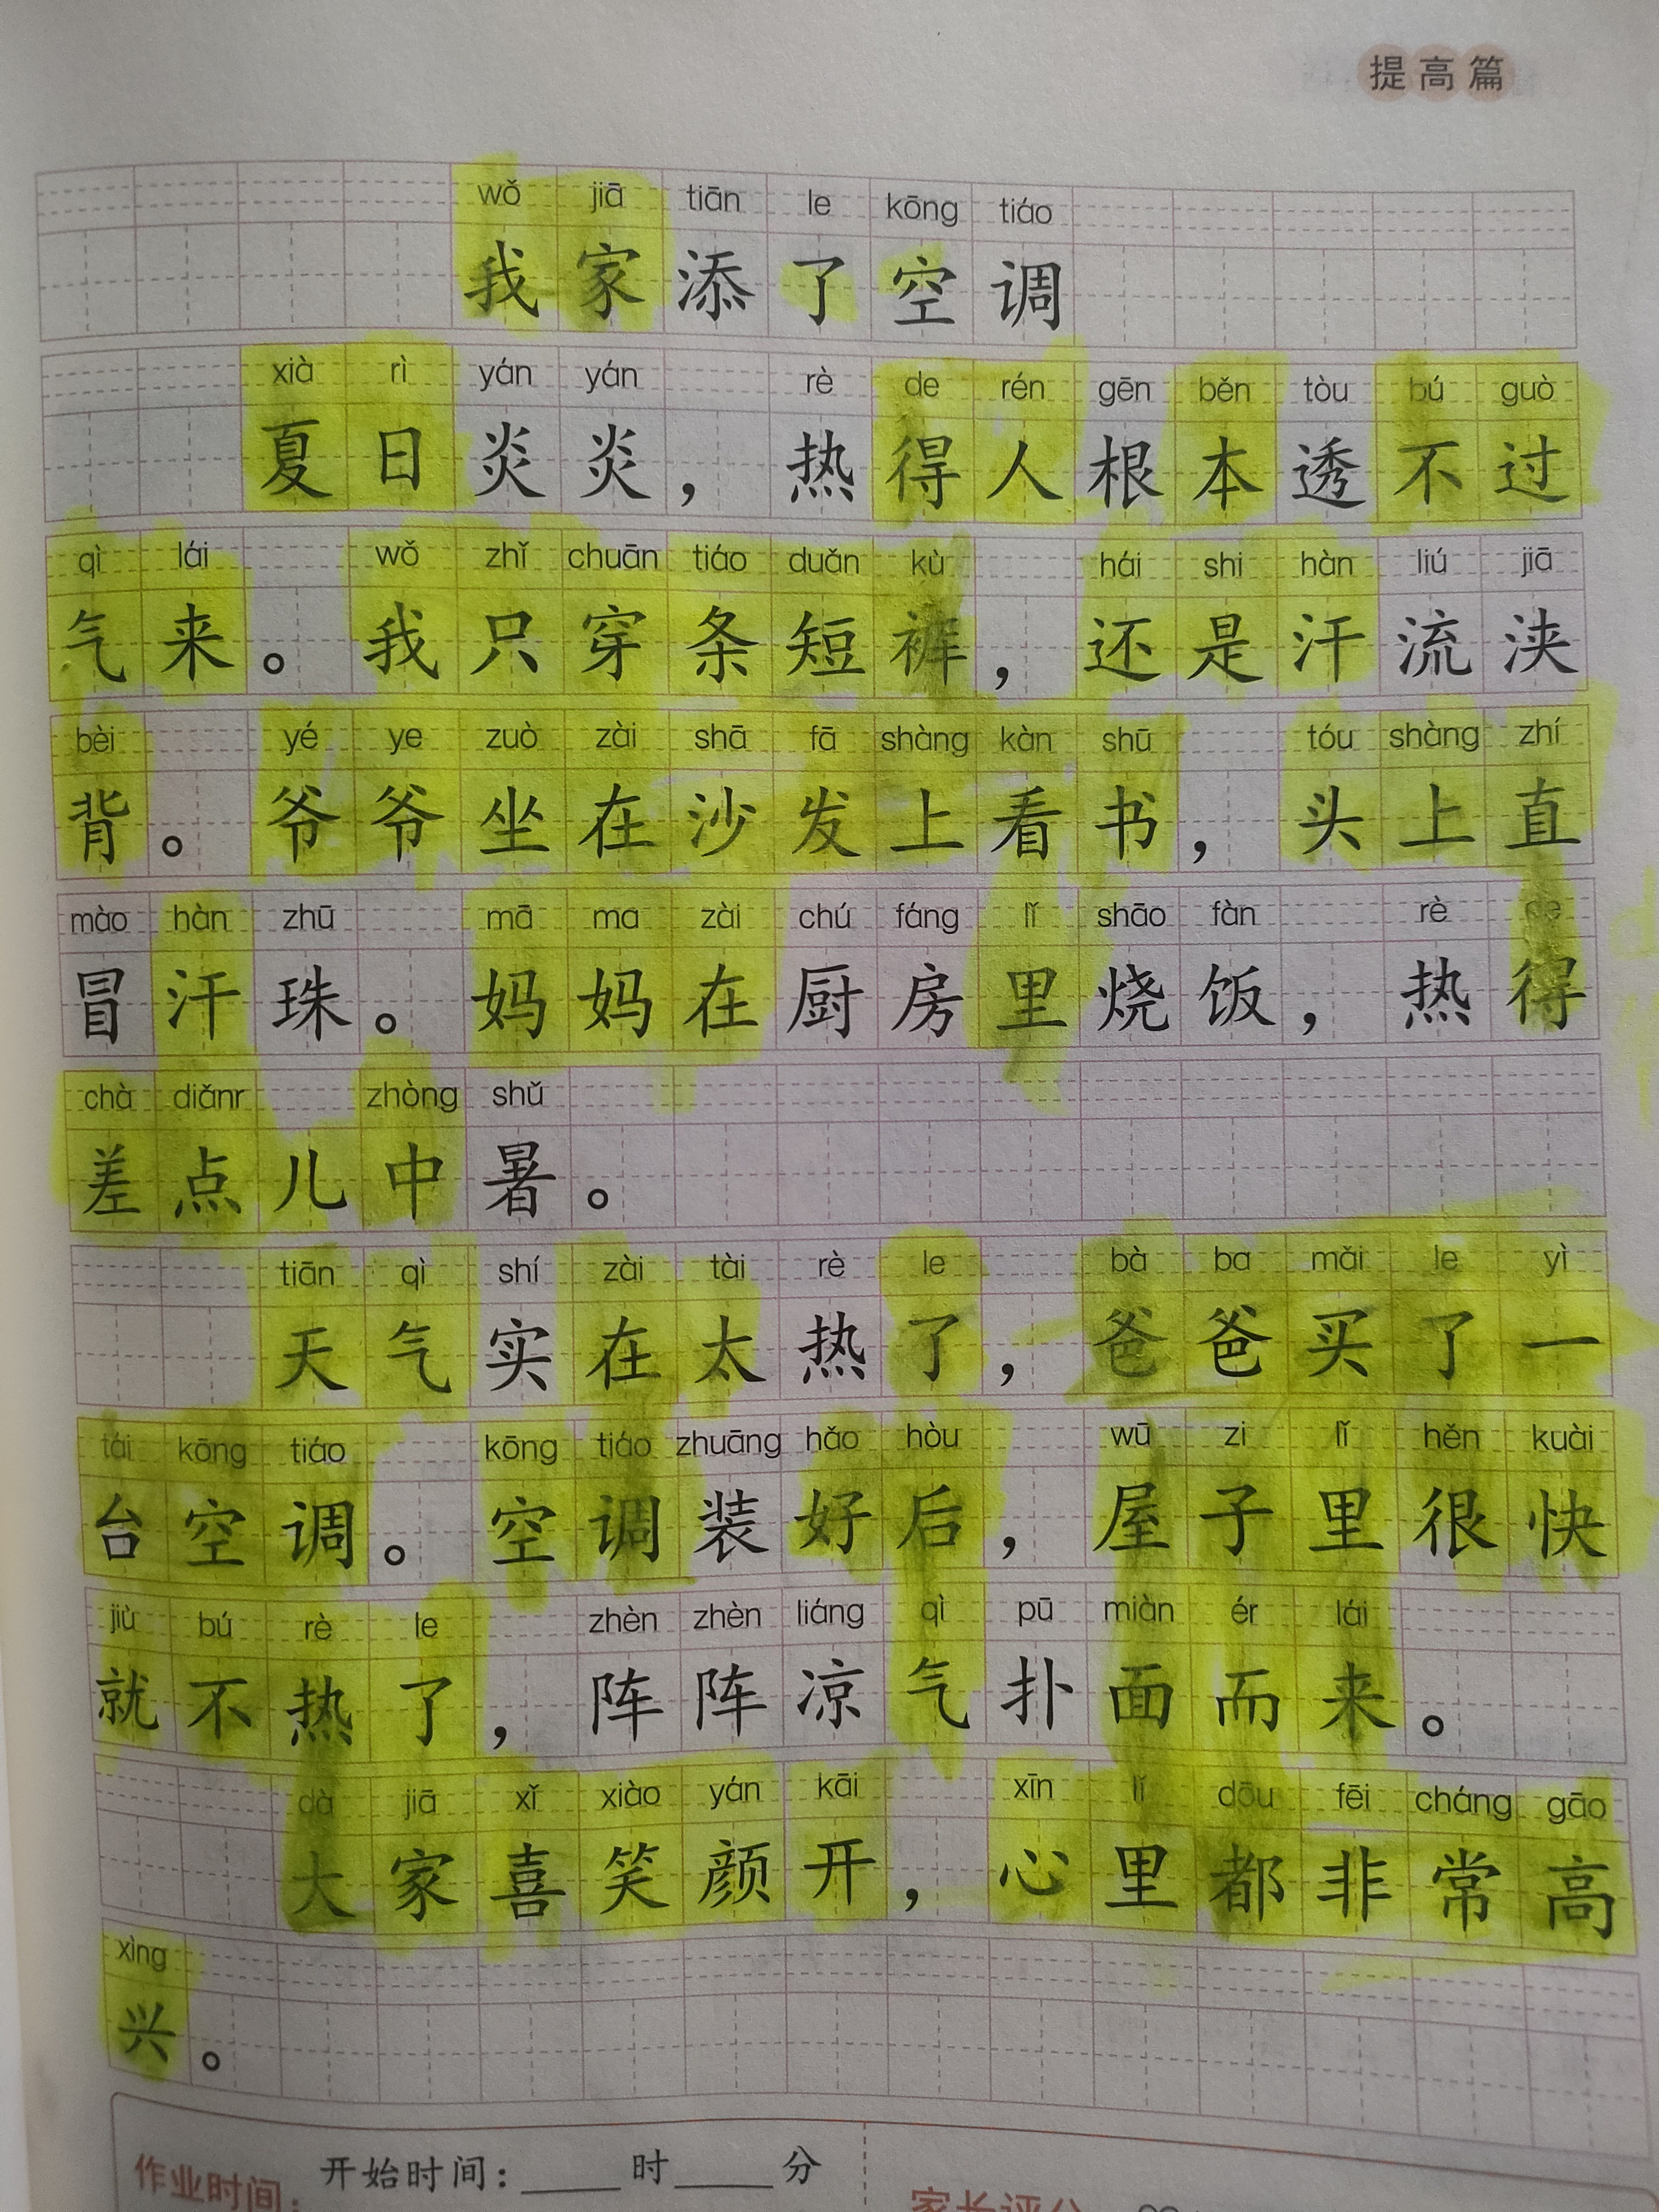 提高篇
wǒ jiā tiān le kōng tiáo
我家添了空调
xià rì yán yán rè de rén gēn běn tòu bú guò
夏日炎炎，热得人根本透不过
qì lái wǒ zhǐ chuān tiáo duǎn kù hái shi hàn liú jiā
气来。我只穿条短裤，还是汗流浃
bèi yé ye zuò zài shā fā shàng kàn shū tóu shàng zhí
背。爷爷坐在沙发上看书，头上直
mào hàn zhū mā ma zài chú fáng lǐ shāo fàn rè de
冒汗珠。妈妈在厨房里烧饭，热得
chà diǎnr zhòng shǔ
差点儿中暑。
tiān qì shí zài tài rè le bà ba mǎi le yì
天气实在太热了，爸爸买了一
tái kōng tiáo kōng tiáo zhuāng hǎo hòu wū zi lǐ hěn kuài
台空调。空调装好后，屋子里很快
jiù bú rè le zhèn zhèn liáng qì pū miàn ér lái
就不热了，阵阵凉气扑面而来。
dà jiā xǐ xiào yán kāi xīn lǐ dōu fēi cháng gāo
大家喜笑颜开，心里都非常高
xìng
兴。
作业时间：开始时间：____时____分
家长评分